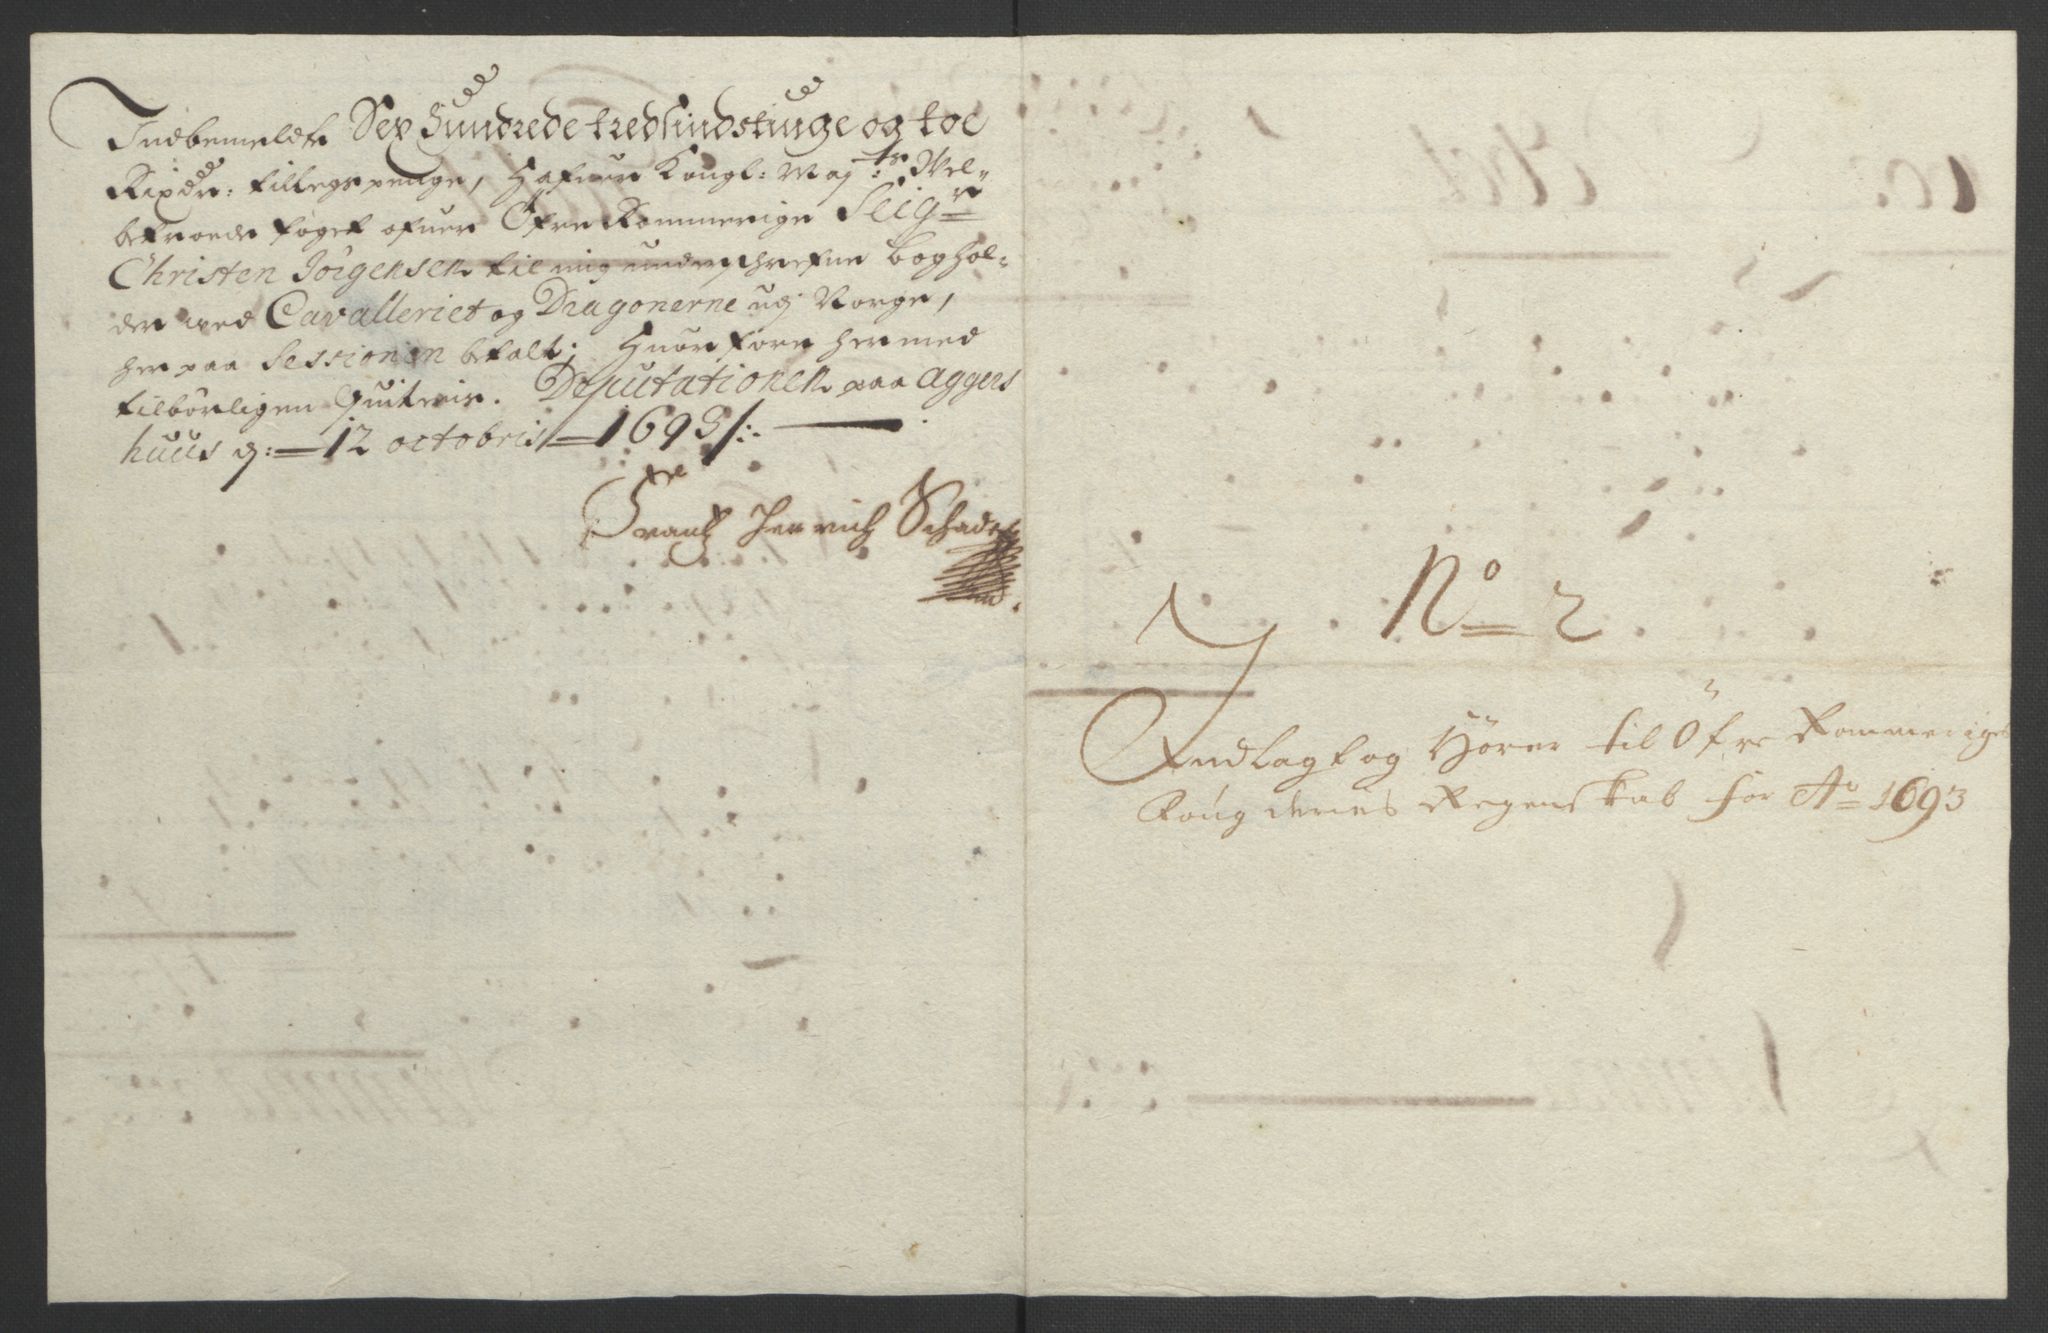 Indbemeldte Sex Hundrede tredsindstiuge og toe
Rixdr: tillegspenge, Hafuer Kongl: Maj:ts Wel-
betroede foget ofuer Öfre Rommerige Seigr
Christen Jörgensen til mig underschrefne boghol-
der wed Cavalleriet og Dragonerne udj Norge,
her paa Sessionen betalt; Huorfore hermed
tilbörligen Quiteris. Deputationen paa Aggers
huus d: 12 octobris 1693/:
Frantz Henrich Schade
No 2
Indlagt og Hörer til Öfre Rommeriges
Foug deries Regenskab for Ao 1693